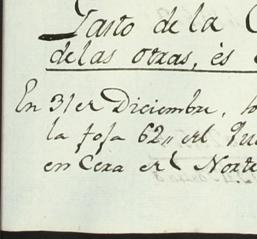 Gasto de la
de las otras, és
En 31 er Diciembre,
la foja 62,, el
en Cera el Norte